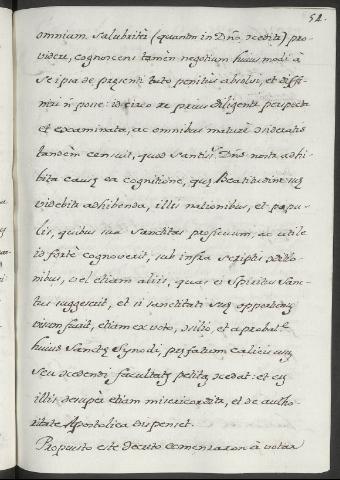 54.
omnium salubritèr (quantùm in Dño ɔcedita) pro-
videre, cognoscens tamèn negotium huius modi à
se ipsa de presenti tuto penitùs absolvi, et diffi-
niri ñ posse: id circo re prius diligentèr perspecta
et examinata, ac omnibus maturè ɔsideratis
tandèm censuit, quod Santisˢ Dñs noster adhi-
bita causę ea cognitione, quę Beatitudini suę
videbita adhibenda, illis nationibus, et popu-
lis, quibus sua Sanctitas proficuum, ac utile
id fortè cognoverit, sub infra scriptis ɔditio-
nibus, vel etiam aliis, quas ei Spiritus Sanc-
tus suggesserit, et si sanctitati suę opportunų
visum fuerit, etiam ex voto, ɔsilio, et aprobatᵉ
huius Sanctę Synodi, pręfatum calicis usų
seu ɔcedendi facultatę petitą ɔcedat: et cų
illis desupèr etiam misericordita, et de autho-
ritate Apostolica dispenset.
Propuesto este decreto comensaron à votar